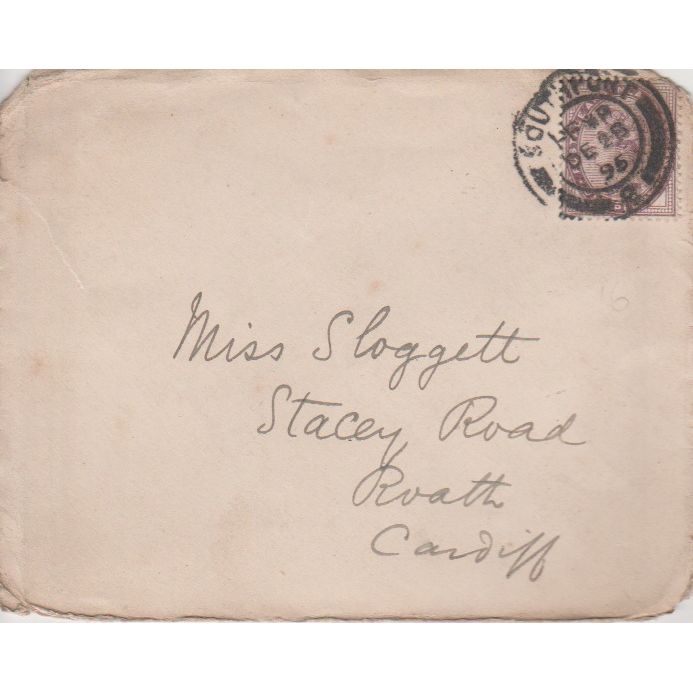 SOUTHPORT
DE 28
95
Miss Sloggett
Stacey Road
Roath
Cardiff
16